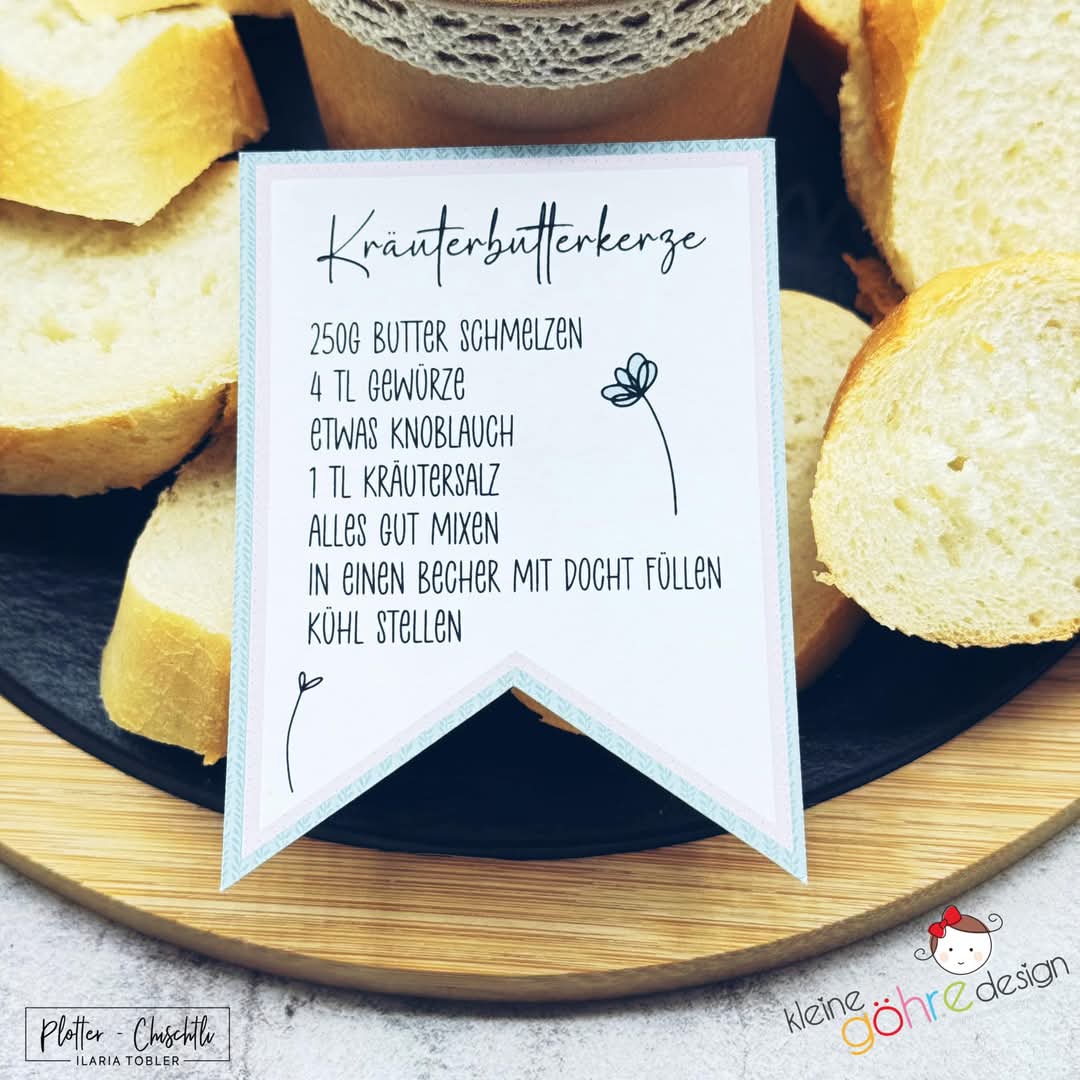 Kräuterbutterkerze
250G BUTTER SCHMELZEN
4 TL GEWÜRZE
ETWAS KNOBLAUCH
1 TL KRÄUTERSALZ
ALLES GUT MIXEN
IN EINEN BECHER MIT DOCHT FÜLLEN
KÜHL STELLEN
Plotter - Chischtli
ILARIA TOBLER
kleine göhre design